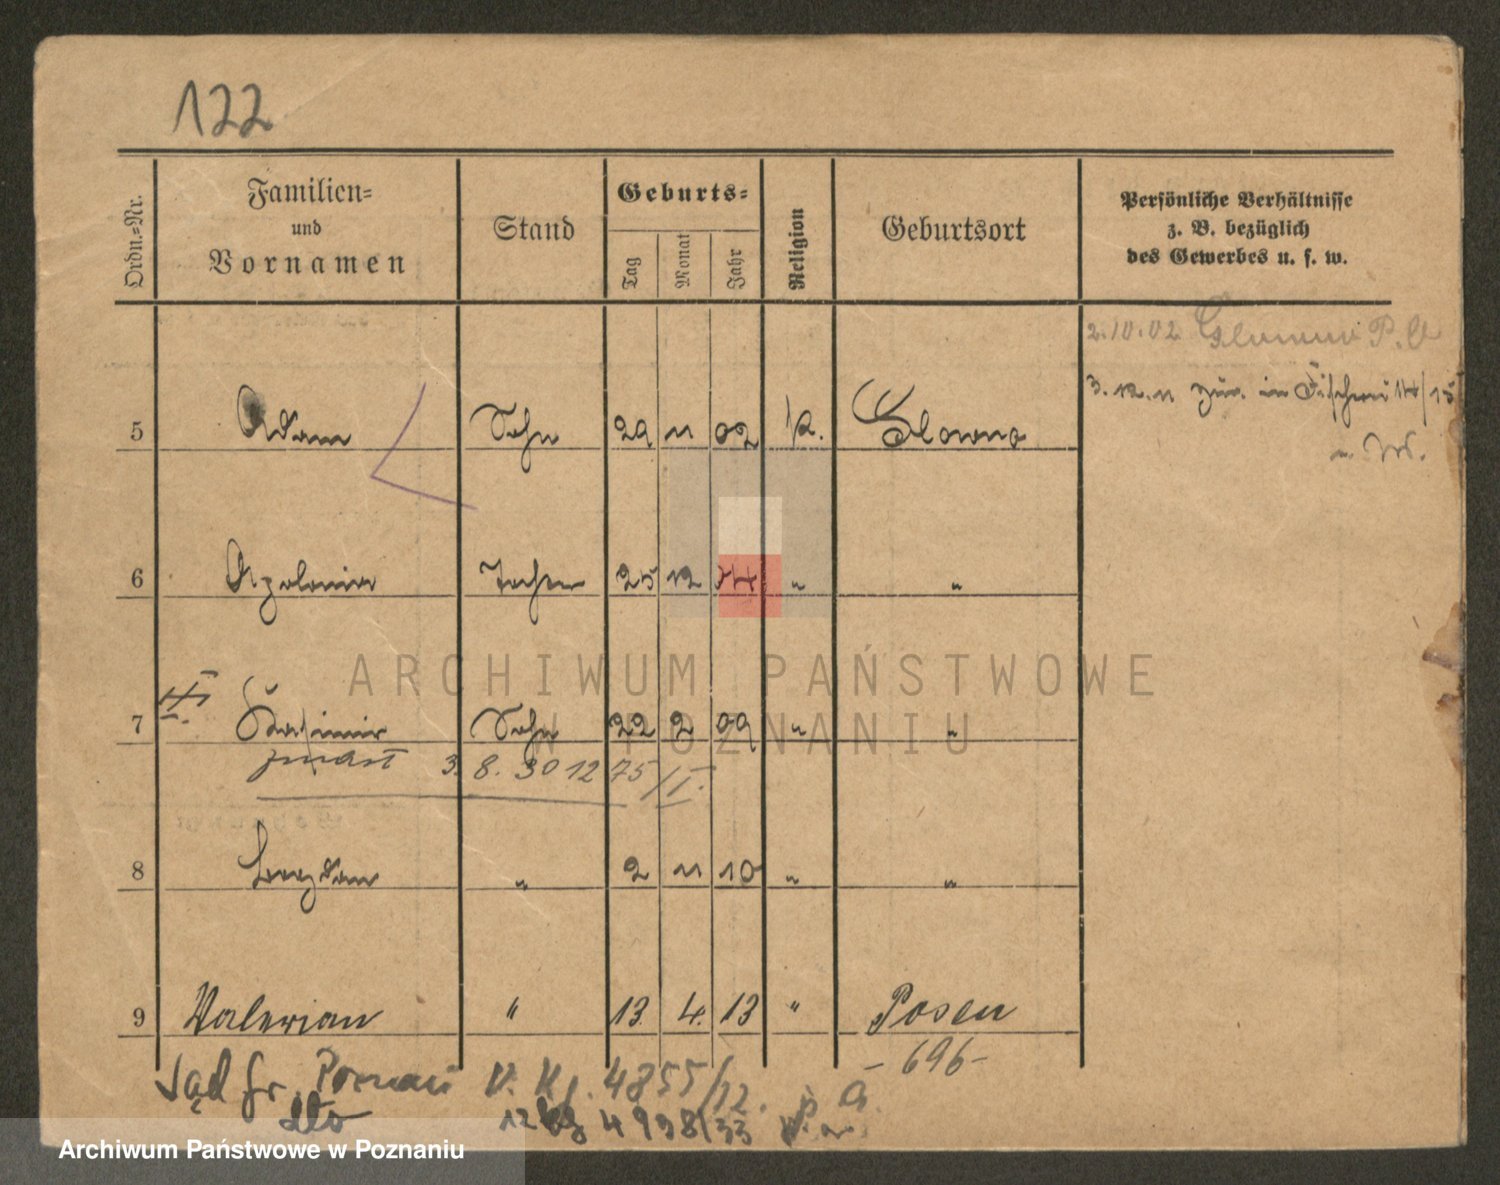 122
Ordn.-Nr.
Familien-
und
Vornamen
Stand
Geburts-
Tag
Monat
Jahr
Religion
Geburtsort
Persönliche Verhältnisse
z. B. bezüglich
des Gewerbes u. s. w.
2.10.02 Glowno P.O
3.12.11 zur. in
5 Adam Sohn 29 11 02 k. Glowno
6 Apolonia Tochter 25 12 04 " "
II.
7 Kasimir Sohn 22 2 09 " "
zmarł 3. 8. 30 12 75/II.
8 Bogdan " 2 11 10 " "
9 Valerian " 13. 4. 13 " Posen
- 696 -
Sąd gr. Poznań V. Kg. 4855/32.
dto 12 Kg 4938/33
ARCHIWUM PAŃSTWOWE
W POZNANIU
Archiwum Państwowe w Poznaniu